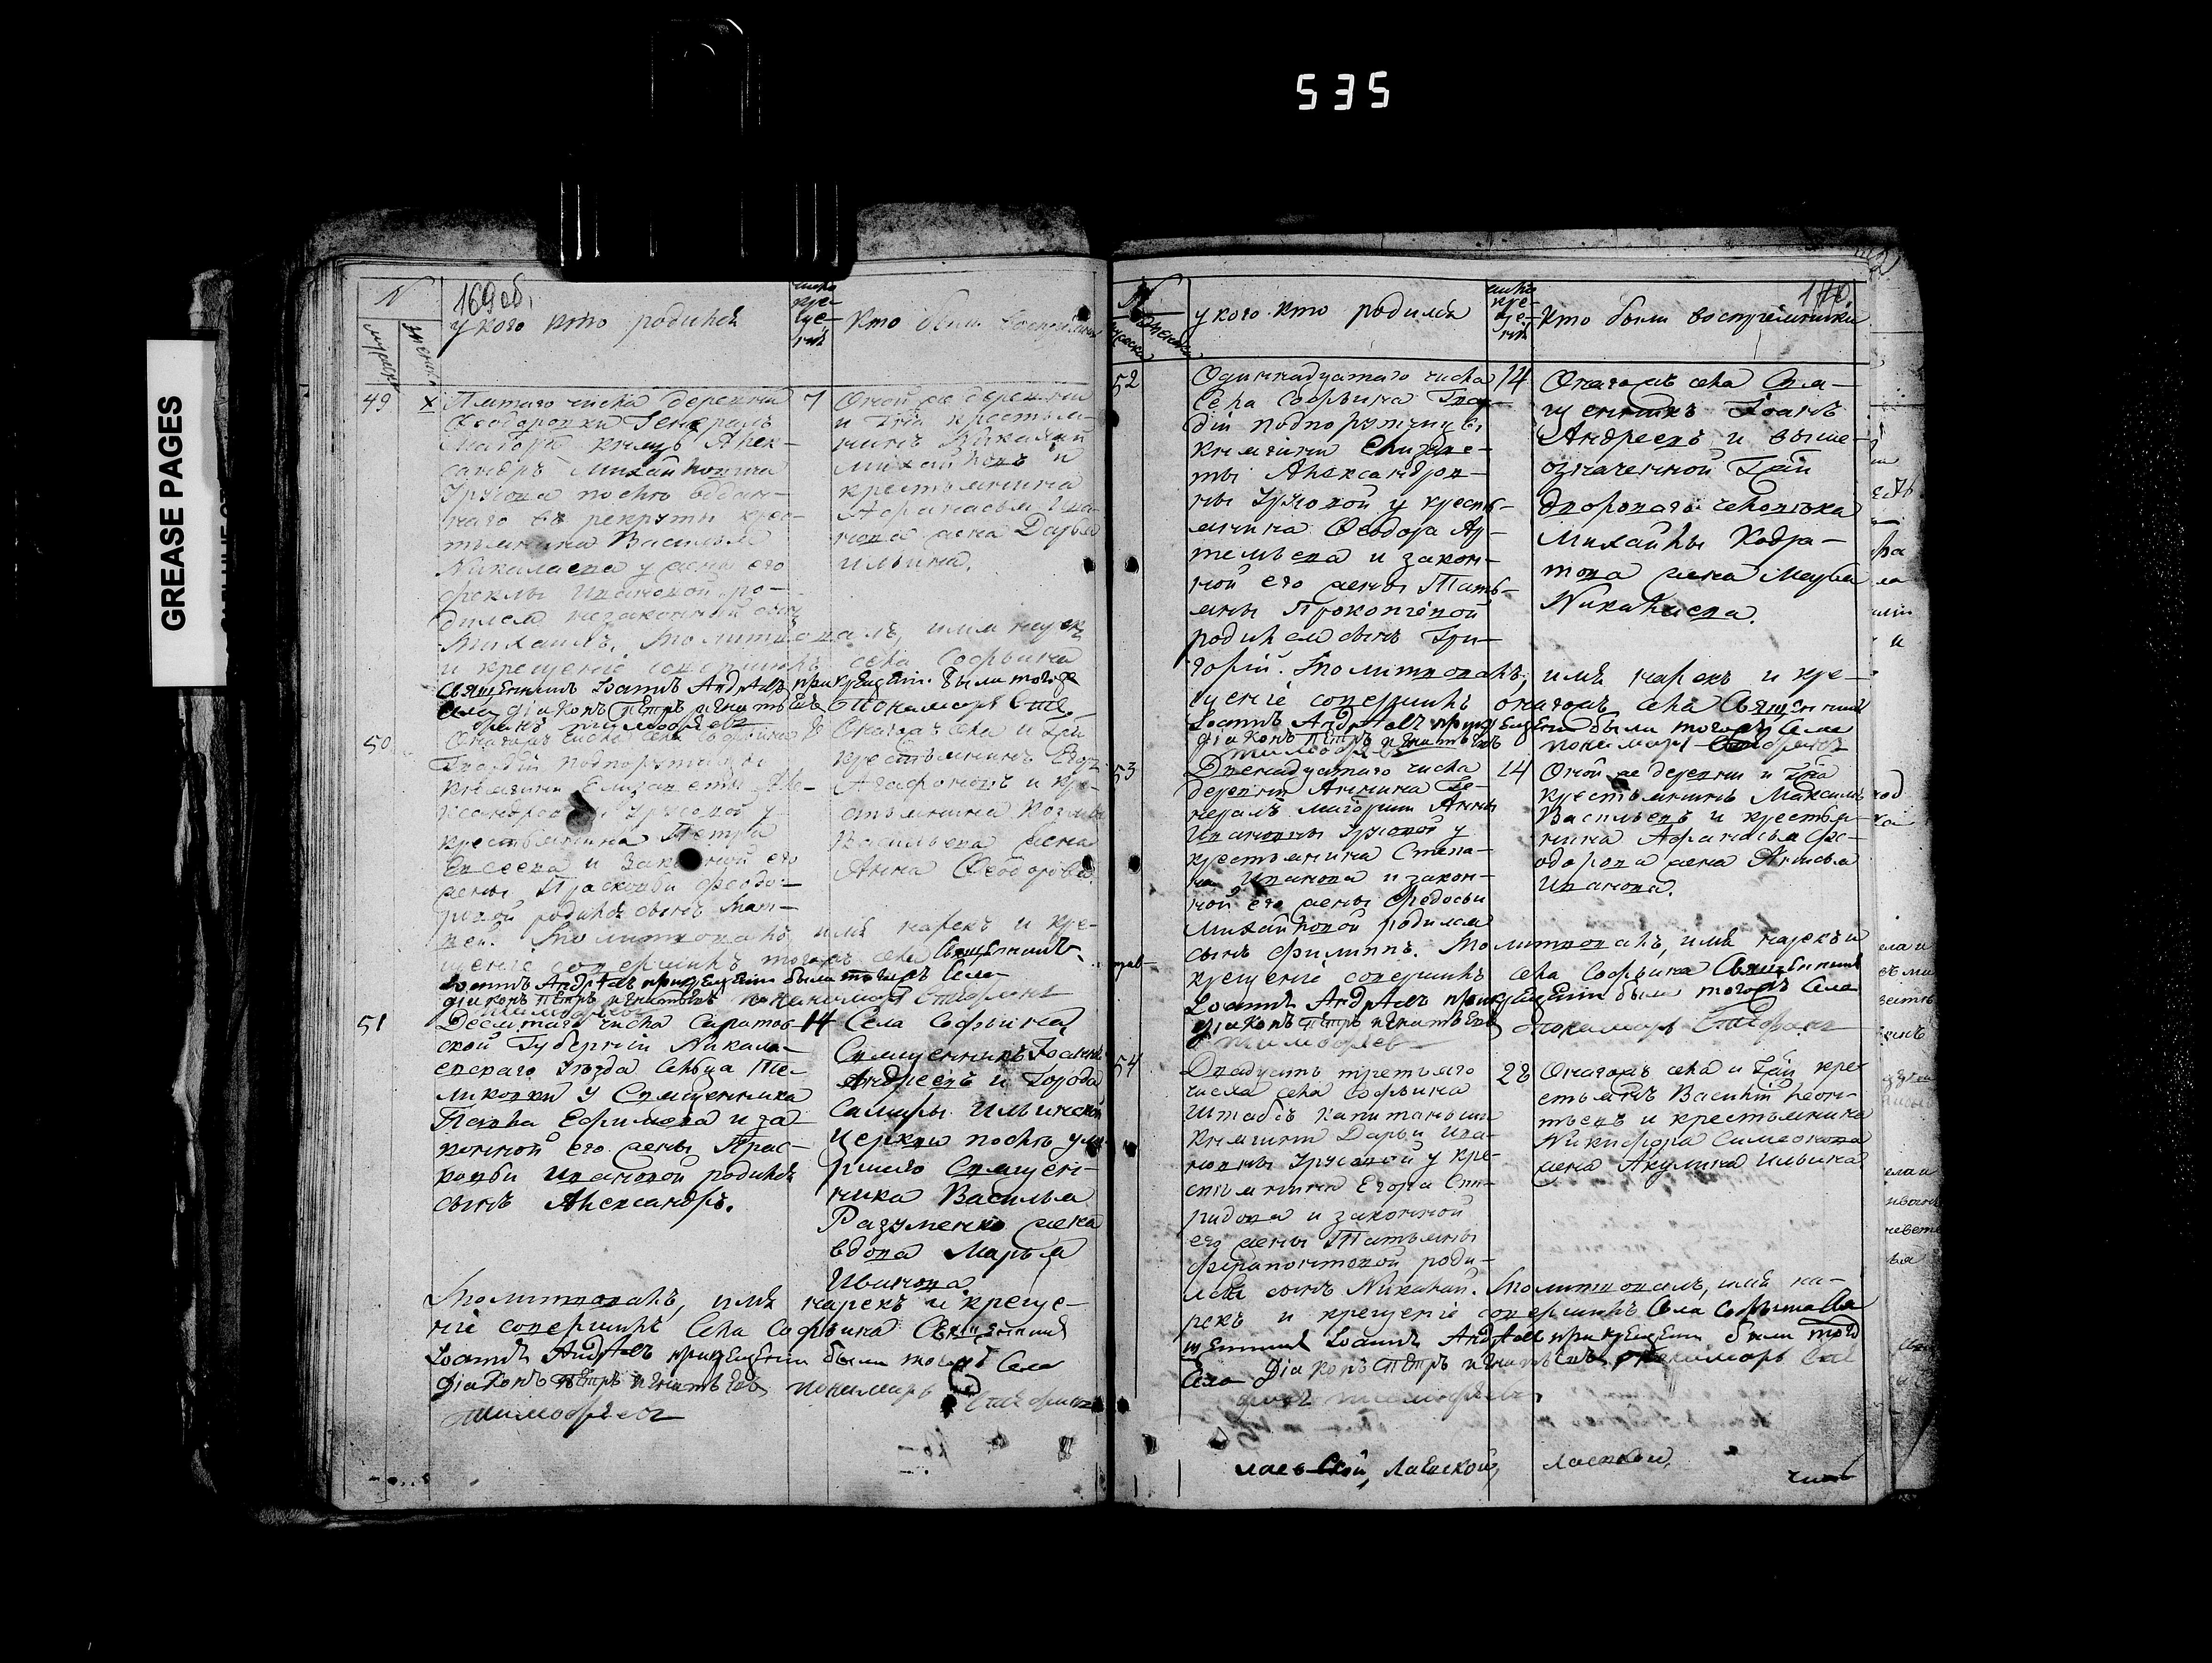 535
GREASE PAGES
N
169 об.
мужеска
женска
у кого кто родился
числа
кре-
ще-
ния
Кто были
49
х
Пятаго числа деревни
Феодоровки Генералъ
Маіора князь Алек-
сандръ Михайловича
Урусова послѣ отдан-
наго въ рекруты крес-
тьянина Василья
Николаева у жены его
Феклы Ивановой ро-
дился незаконный сынъ
Михаилъ. Молитвовалъ, имя нарекъ
и крещеніе совершилъ села Софьина
Священникъ Іоаннъ Андрѣевъ при крещеніи были тогожъ
села діаконъ Петръ Игнатьевъ Пономарь Сте-
фанъ Тимофѣевъ
7
Оной же деревни
и Гжи крестья-
нинъ Николай
Михайловъ и
крестьянина
Афанасья Ива-
нова жена Дарья
Ильина.
50
Онагожъ числа села Софьина
Гвардіи подпоручицы
княгини Елизаветы Але-
ксандровны Урусовой у
крестьянина Петра
Евсеева и законной его
жены Прасковьи Феодо-
ровой родился сынъ Мат-
вей. Молитвовалъ, имя нарекъ и кре-
щеніе совершилъ тогожъ села Священникъ
Іоаннъ Андрѣевъ при крещеніи были тогожъ Села
діаконъ Петръ Игнатьевъ пономарь Стефанъ
Тимофѣевъ
8
Онагожъ села и Гжи
крестьянинъ Егоръ
Агафоновъ и кре-
стьянина Козмы
Васильева жена
Анна Феодорова.
51
Десятаго числа Саратов-
ской Губерніи Никола-
евскаго Уѣзда Сельца Те-
ликовки у Священника
Павла Ефимова и за-
конной его жены Прас-
ковьи Ивановой родился
сынъ Александръ.
14
Села Софьина
Священникъ Іоаннъ
Андреевъ и Города
Самары Ильинской
Церкви послѣ уме-
ршаго Священ-
ника Василья
Разуменко жена
вдова Марья
Иванова.
Молитвовалъ, имя нарекъ и креще-
ніе совершилъ Села Софьина Священникъ
Іоаннъ Андрѣевъ при крещеніи были тогожъ Села
Діаконъ Петръ Игнатьевъ пономарь Стефанъ
Тимофѣевъ
N
мужеска
женска
у кого кто родился
числа
кре-
ще-
ния
Кто были воспріемники
170
52
Одиннадцатаго числа
Села Софьина Гвар-
діи подпоручицы
княгини Елизаве-
ты Александров-
ны Урусовой у кресть-
янина Феодора Ар-
темьева и закон-
ной его жены Тать-
яны Прокопіевой
родился сынъ Гри-
горій. Молитвовалъ, имя нарекъ и кре-
щеніе совершилъ онагожъ села Священникъ
Іоаннъ Андрѣевъ при крещеніи были тогожъ Села
Діаконъ Петръ Игнатьевъ пономарь Стефанъ
Тимофѣевъ
14
Онагожъ села Свя-
щенникъ Іоаннъ
Андреевъ и выше-
означенной Гжи
двороваго человѣка
Михайлы Кодра-
това жена Мавра
Николаева.
53
Двенадцатаго числа
деревни Аннина Ге-
нералъ маіорши Анны
Ивановны Урусовой у
крестьянина Степа-
на Иванова и закон-
ной его жены Федосьи
Михайловой родился
сынъ Филиппъ. Молитвовалъ, имя нарекъ и
крещеніе совершилъ села Софьина Священникъ
Іоаннъ Андрѣевъ при крещеніи были тогожъ Села
Діаконъ Петръ Игнатьевъ пономарь Стефанъ
Тимофѣевъ
14
Оной же деревни и Гжи
крестьянинъ Максимъ
Васильевъ и крестья-
нина Афанасья Фе-
одорова жена Анисья
Иванова.
54
Двадцать третьяго
числа села Софьина
Штабсъ капитанши
княгини Дарьи Ива-
новны Урусовой у кре-
стьянина Егора Спи-
ридова и законной
его жены Татьяны
Ферапонтовой роди-
лся сынъ Николай. Молитвовалъ, имя на-
рекъ и крещеніе совершилъ Села Софьина Свя-
щенникъ Іоаннъ Андрѣевъ при крещеніи были тогожъ
Села Діаконъ Петръ Игнатьевъ пономарь Сте
фанъ Тимофѣевъ
28
Онагожъ села и Гжи кре-
стьянъ Василій Леон-
тьевъ и крестьянина
Никифора Симеонова
жена Акулина Ильина